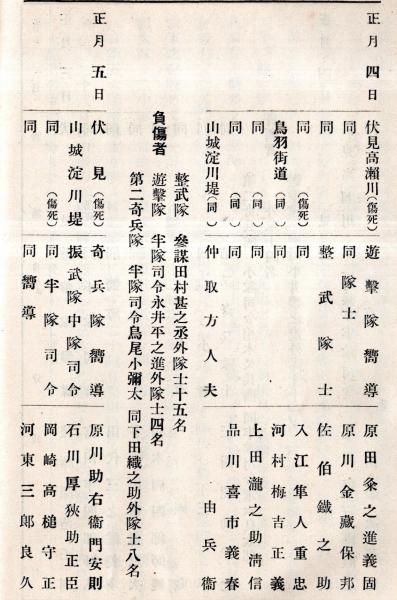 正月四日 伏見高瀬川(傷死) 遊擊隊嚮導 原田粂之進義固
同 同隊士 原川金藏保邦
同 整武隊士 佐伯鐵之助
同(傷死) 同 入江隼人重忠
鳥羽街道(同) 同 河村梅吉正義
同(同) 同 上田瀧之助清信
同(同) 同 品川喜市義春
山城淀川堤(同) 仲取方人夫 由兵衞
負傷者
整武隊 參謀田村甚之丞外隊士十五名
遊擊隊 半隊司令永井平之進外隊士四名
第二奇兵隊 半隊司令鳥尾小彌太 同下田織之助外隊士八名
正月五日 伏見(傷死) 奇兵隊嚮導 原川助右衞門安則
山城淀川堤 振武隊中隊司令 石川厚狹助正臣
同(傷死) 同半隊司令 岡崎高槌守正
同 同嚮導 河東三郎良久